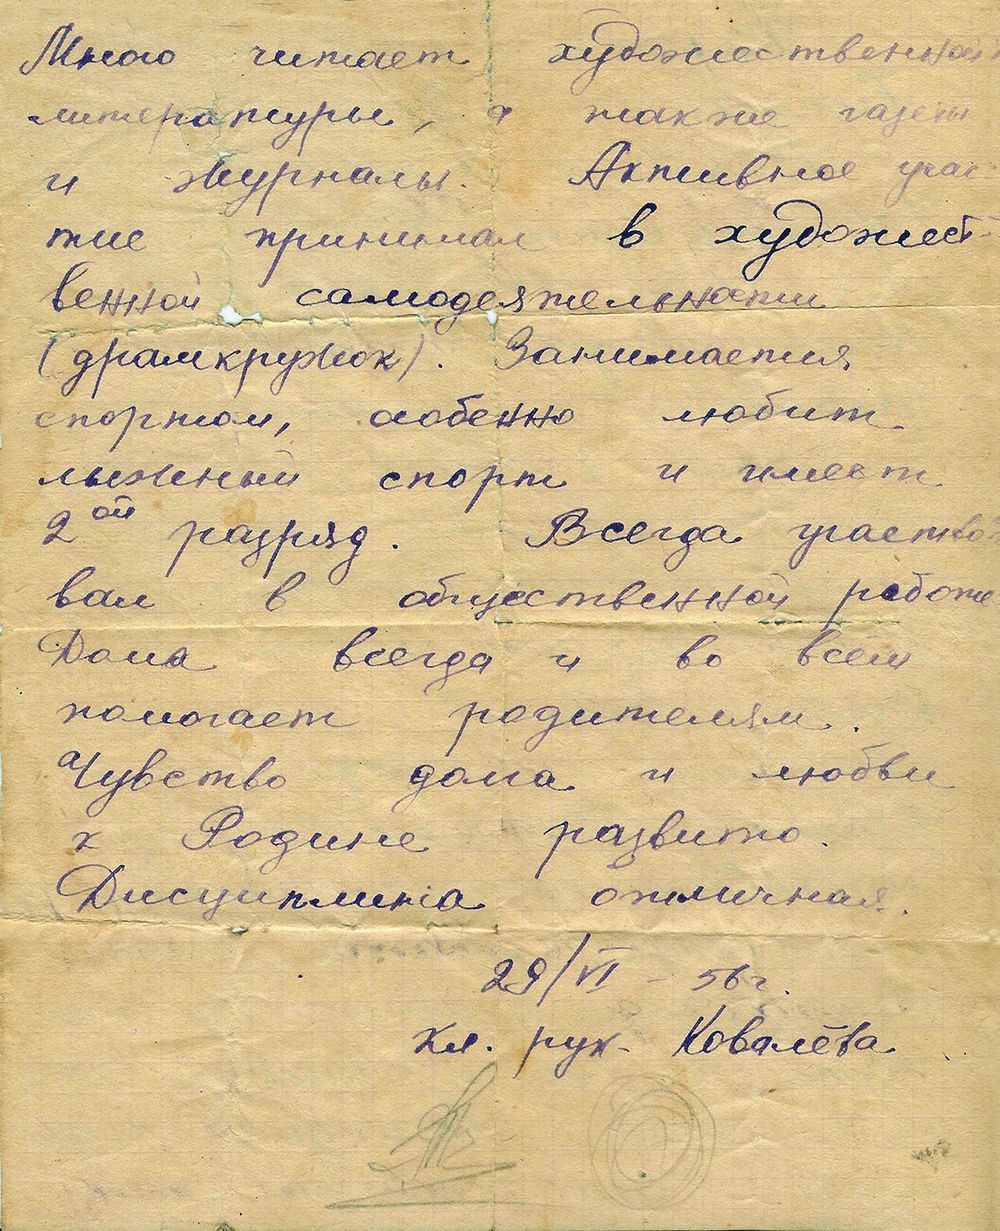 Много читает художественной
литературы, а также газеты
и журналы. Активное учас-
тие принимал в художест-
венной самодеятельности
(драмкружок). Занимается
спортом, особенно любит
лыжный спорт и имеет
2ой разряд. Всегда участво-
вал в общественной работе
Дома всегда и во всём
помогает родителям.
Чувство дома и любви
к Родине развито.
Дисциплина отличная.
29/VI - 56 г.
Кл. рук. Ковалёва